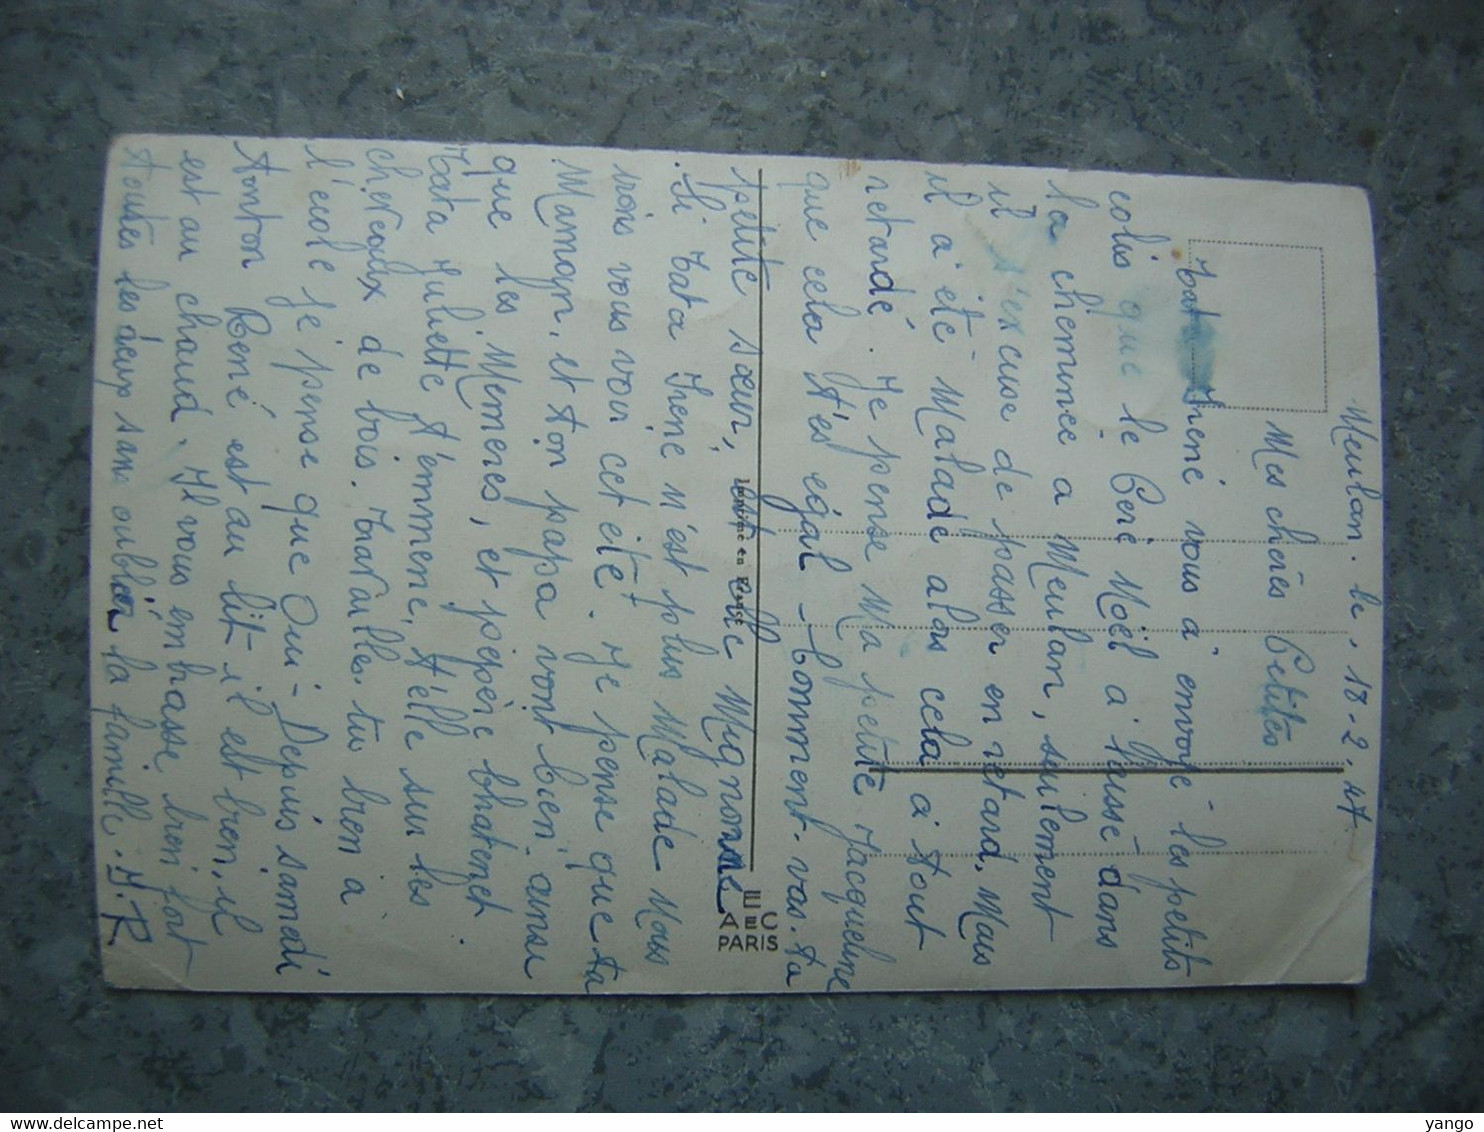 Meulan. le, 18-2.57
Mes chères Petites
tata Irène vous a envoyé - les petits
colis que le Père Noël a laissé dans
la cheminée a Meulan, seulement
il s'excuse de passer en retard. Mais
il a été Malade alors cela a tout
retardé. Je pense Ma petite Jacqueline
que cela t'es égal - Comment. vas. ta
petite sœur, est elle Mignonne
. Si tata Irène n'est plus Malade Nous
irons vous voir cet été. Je pense que ta
Maman, et ton papa vont bien. ainsi
que les Memères, et pépère
tata Juliette t'emmène, t'elle sur les
chevaux de bois. travailles. tu bien a
l'école je pense que Oui - Depuis samedi
tonton René est au lit il est bien, il
est au chaud. Il vous embrasse bien fort
toutes les deux sans oublier la famille. I. R
Imprimé en France
AEC
PARIS
yango